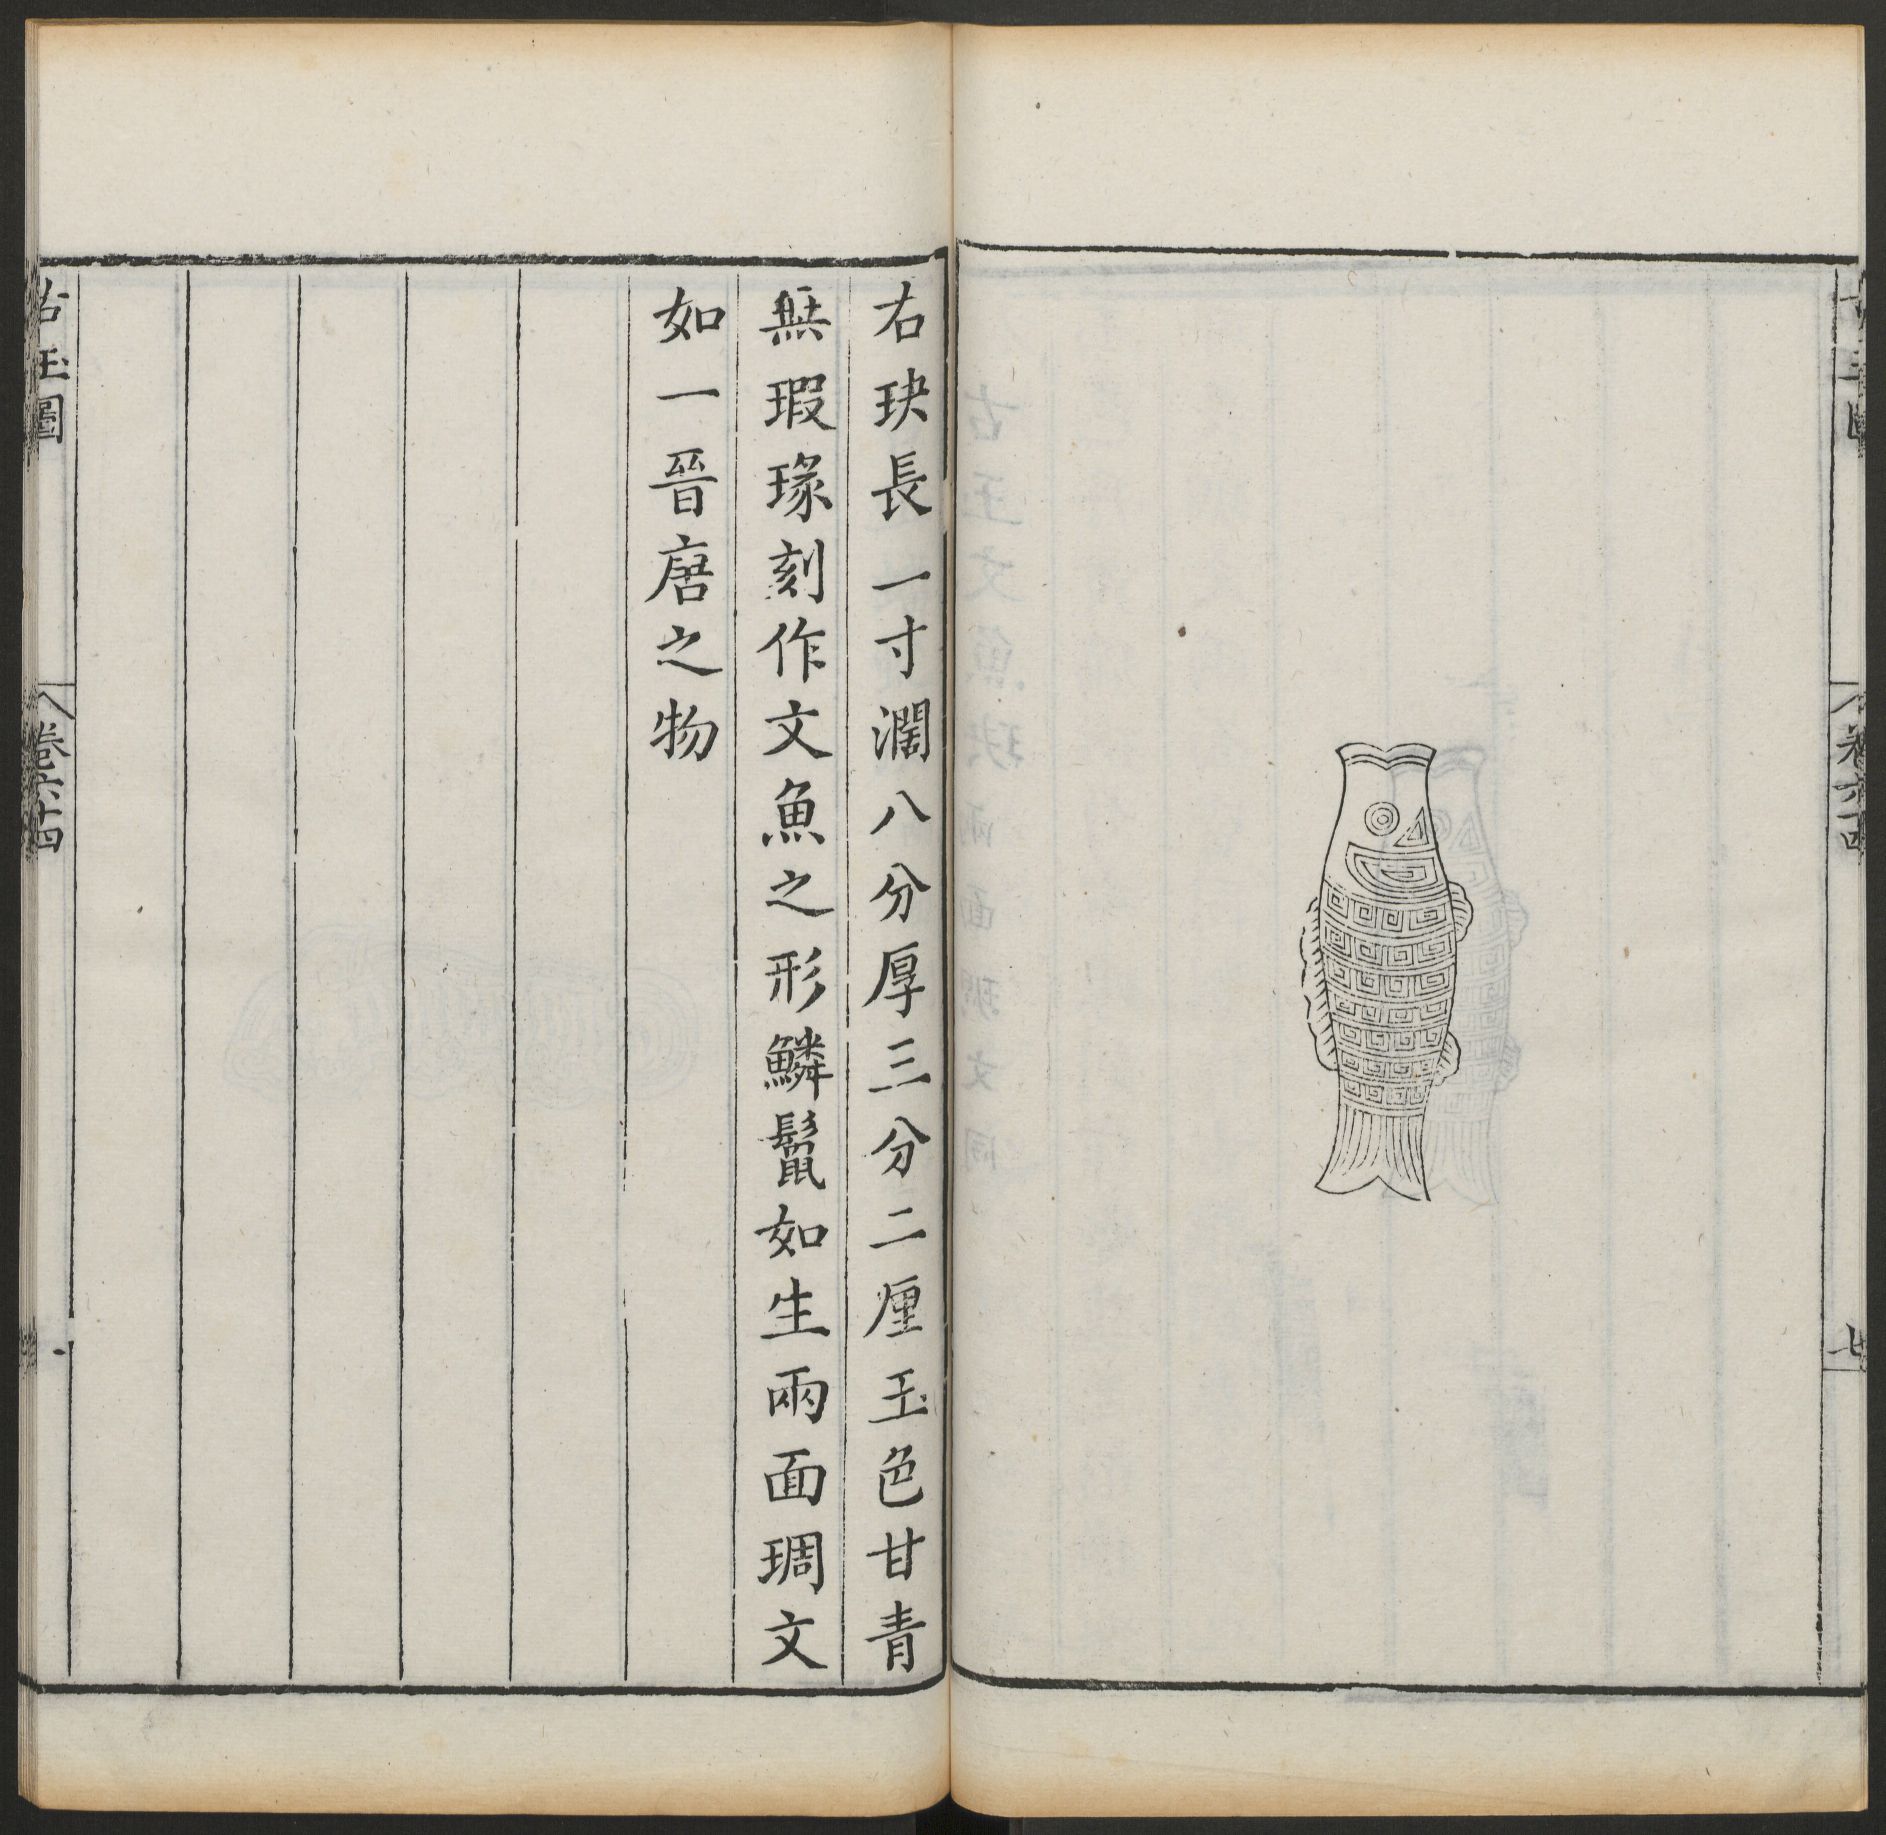 右玦長一寸濶八分厚三分二厘玉色甘青
無瑕瑑刻作文魚之形鱗鬣如生兩面琱文
如一晉唐之物
古玉圖
卷六十四